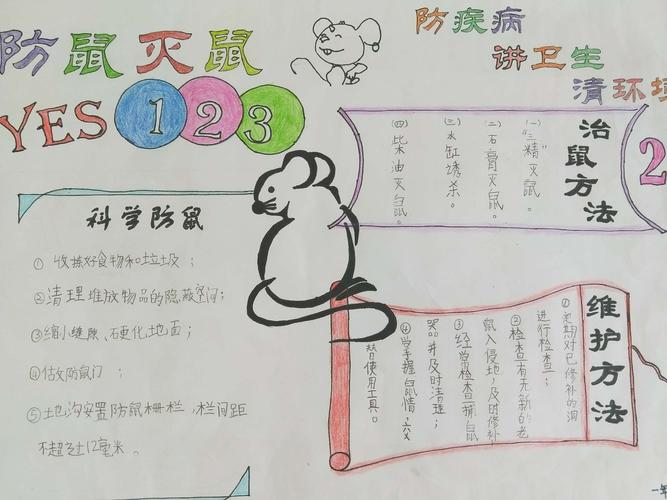 防鼠灭鼠
YES 1 2 3
防疾病
讲卫生
清环境
科学防鼠
① 收捡好食物和垃圾；
②清理堆放物品的隐蔽空间；
③缩小缝隙、硬化地面；
④估攵防鼠门：
⑤土地沟安置防鼠栅栏，栏间距
不超过12毫米。
治鼠方法
2
(一)"三精"灭鼠。
(二)石膏灭鼠。
(三)水缸诱杀。
(四)柴油灭鼠。
维护方法
①定期对已修补的洞
进行检查；
②检查有无新的老
鼠入侵地，及时修补
③经常检查捕鼠
器并及时清理；
④掌握鼠情，
替使用工具。
一年